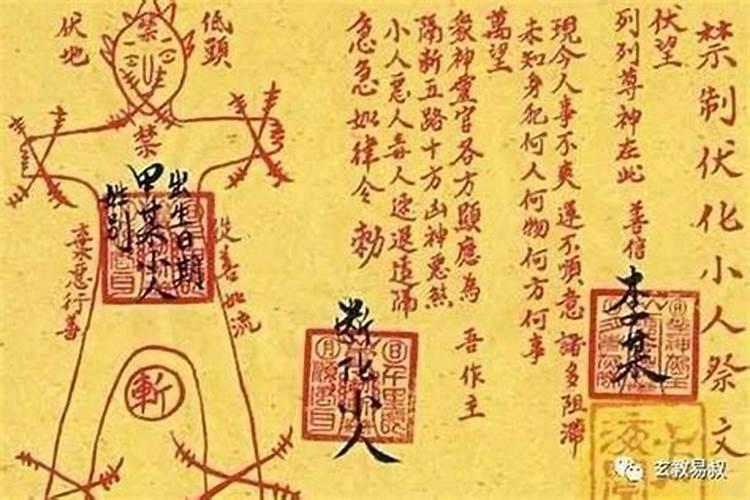 禁制伏化小人祭文
伏望
列列尊神在此 善信 李某
現今人事不爽運不順意諸多阻滯
未知身犯何人何物何方何事
萬望
眾神靈官各方顯應為 吾作主
隔断五路十方凶神惡煞
小人惡人毒人速退遠隔
急急如律令 勅
断化小人
低頭
禁
伏地
禁
出生日期
甲某小人
姓别
從善如流
棄惡行善
斬
玄教易叔